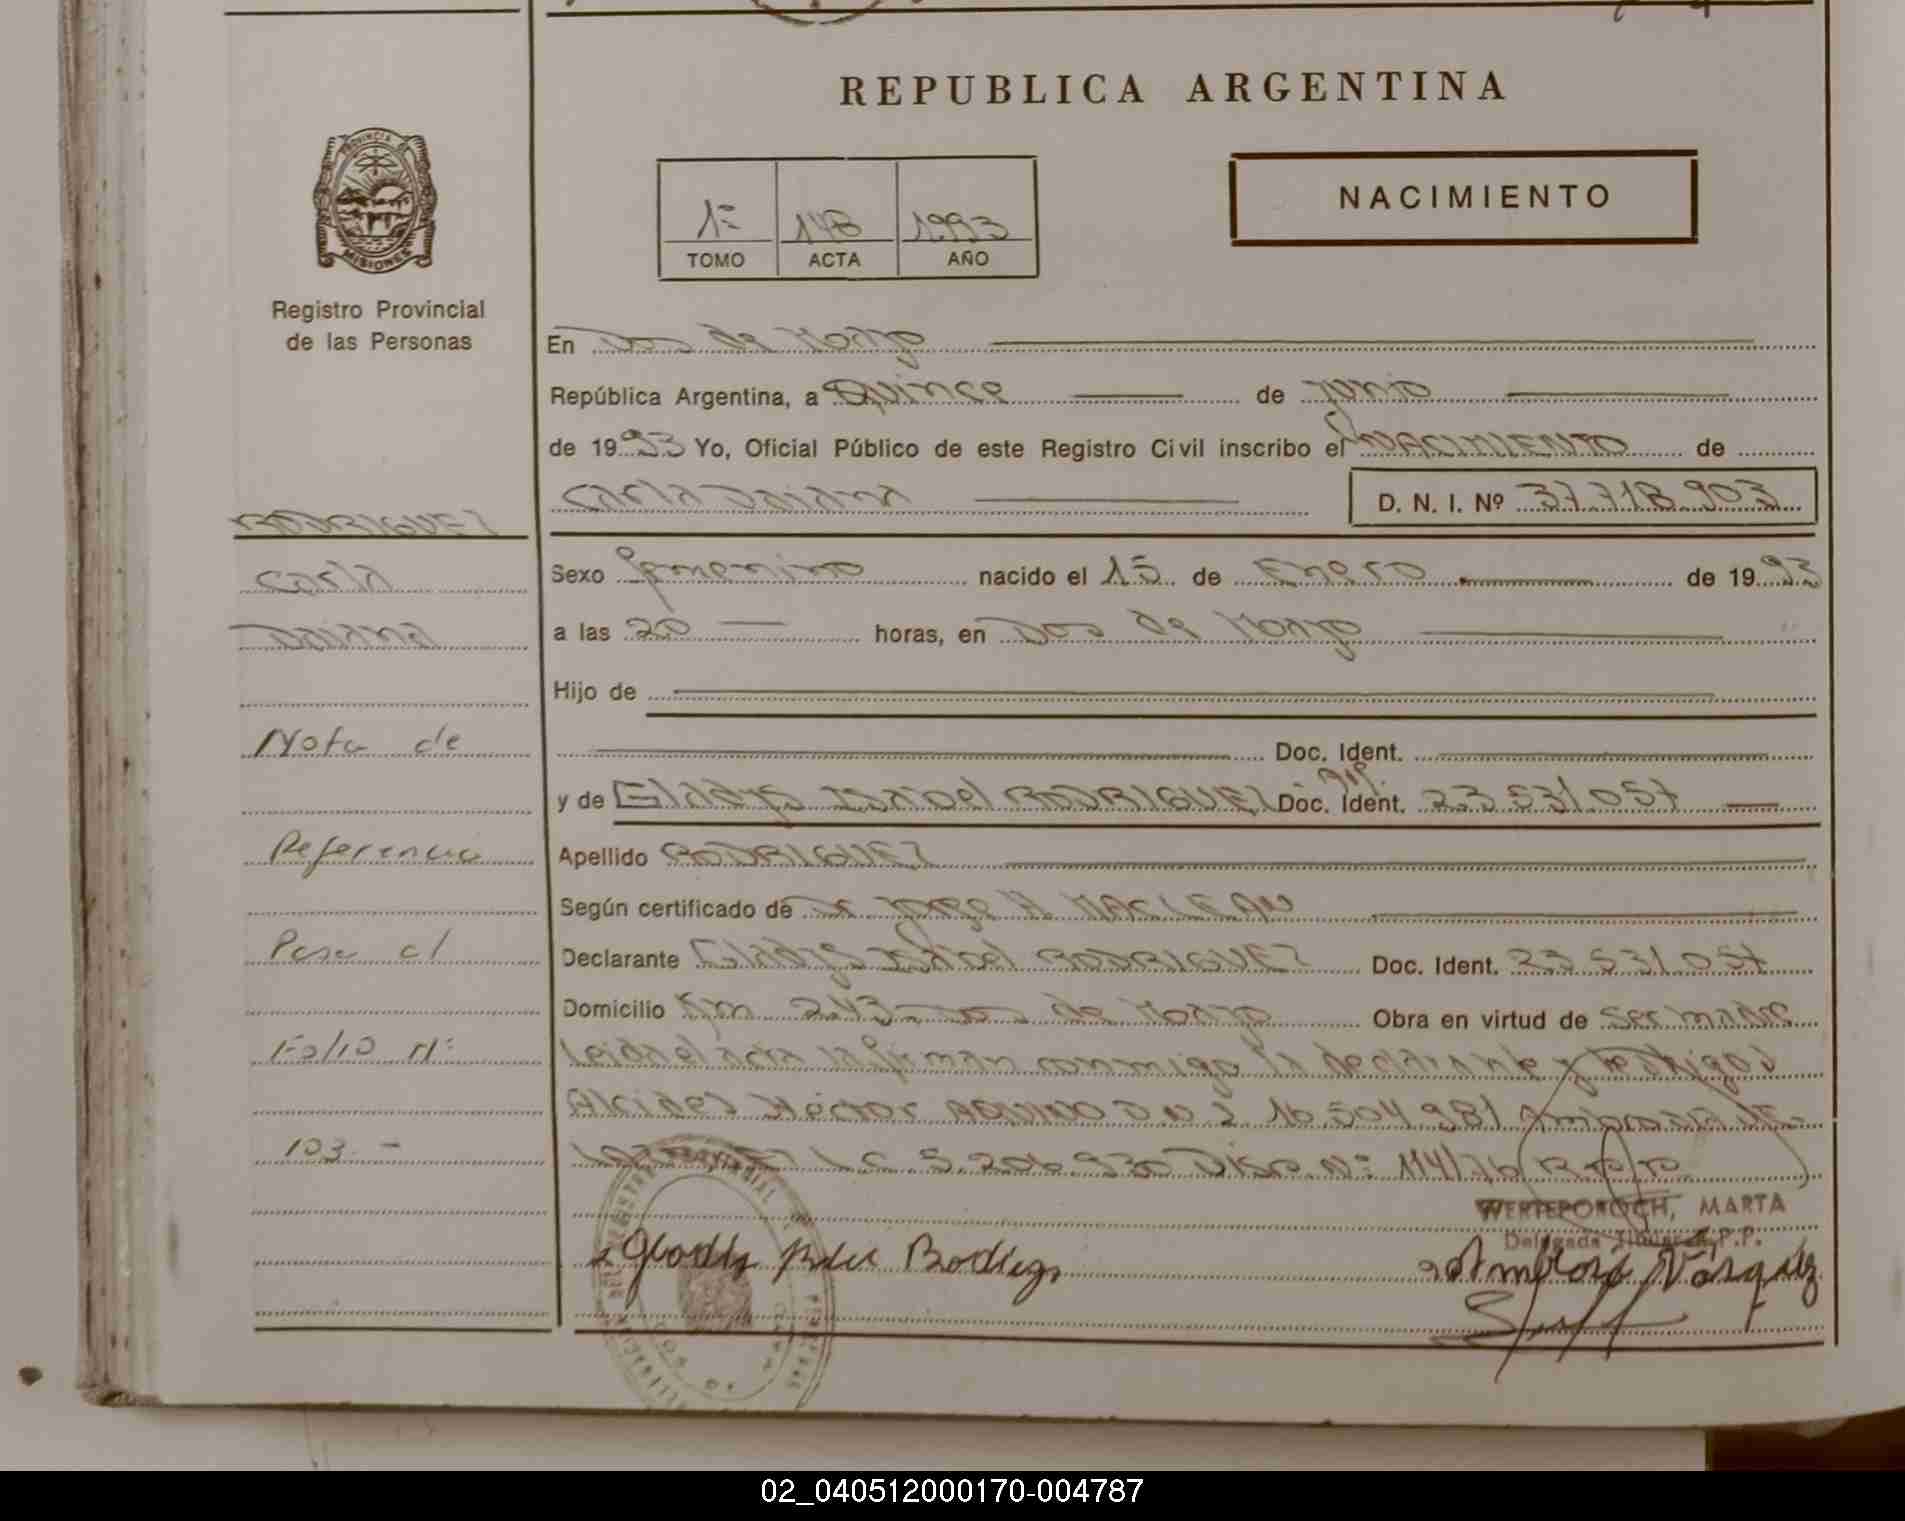 REPUBLICA ARGENTINA
PROVINCIA
MISIONES
Registro Provincial
de las Personas
1º 148 1993
TOMO ACTA AÑO
NACIMIENTO
En Dos de Mayo
República Argentina, a Quince de junio
de 1993 Yo, Oficial Público de este Registro Civil inscribo el NACIMIENTO de
Carla Daiana D. N. I. Nº 37.718.903
RODRIGUEZ
Carla
Daiana
Nota de
Referencia
Pasa al
Folio Nº
103.-
Sexo femenino nacido el 15 de Enero de 1993
a las 20 horas, en Dos de Mayo
Hijo de
Doc. Ident.
y de Gladys Isabel RODRIGUEZ Doc. Ident. 23.531.057
Apellido RODRIGUEZ
Según certificado de Dr Jorge A. MAC LEAN
Declarante Gladys Isabel RODRIGUEZ Doc. Ident. 23.531.057
Domicilio Km 243 - Dos de Mayo Obra en virtud de ser madre
Leida el acta la firman conmigo la declarante y testigos
Alcides Héctor AQUINO D.N.I. 16.504.981 Ambrosia
L.C. 5.206.930 Disp. Nº 114/76
WERTEPOROCH, MARTA
Delegada Titular R.P.P.
Ambrosia Vasquez
02_040512000170-004787